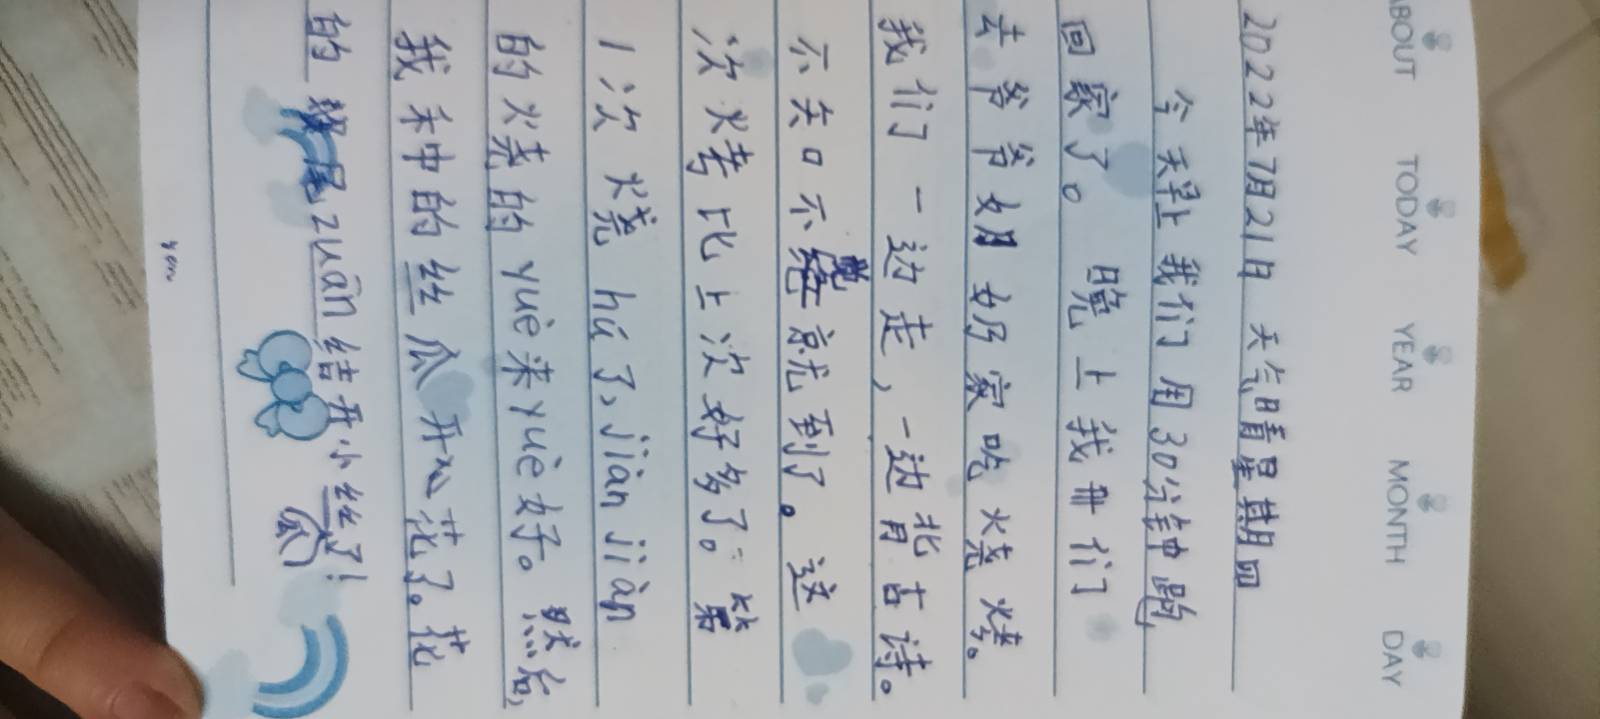 ABOUT TODAY YEAR MONTH DAY
2022年7月21日 天气晴星期四
今天早上我们用30分钟跑
回家了。晚上我和们
去爷爷奶奶家吃烧烤。
我们一边走,一边背古诗。
不知不觉就到了。这
次烤比上次好多了。第
1次烧hú了,jiàn jiàn
的烧的yuè来yuè好。然后,
我禾中的丝瓜开花了。花
的尾zuān结开小丝瓜了!